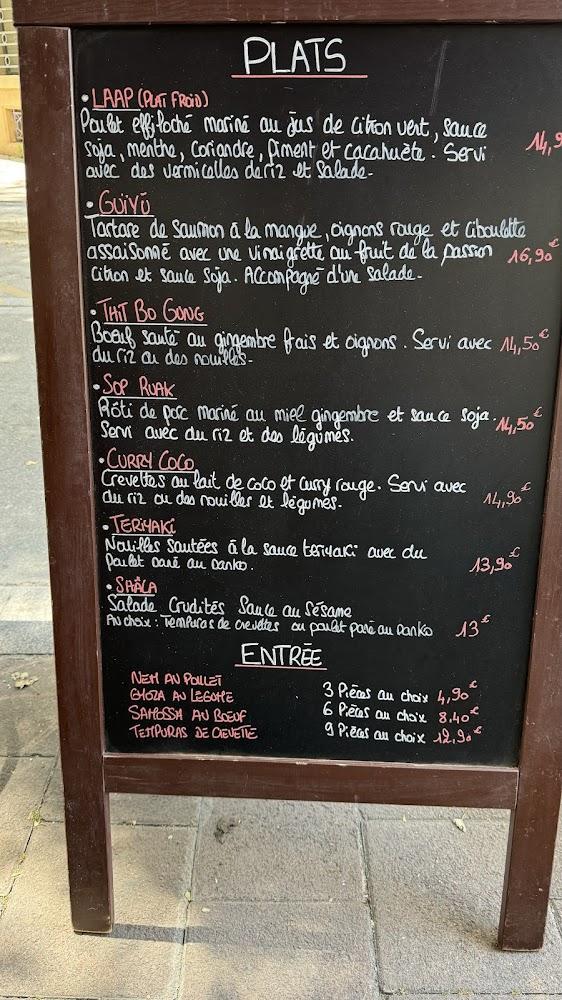 PLATS
• LAAP (PLAT FROID)
Poulet effiloché mariné au jus de citron vert, sauce
soja, menthe, coriandre, piment et cacahuète. Servi 14,9
avec des vermicelles de riz et salade-
• GUIYÜ
Tartare de saumon à la mangue, oignons rouge et ciboulette
assaisonné avec une vinaigrette au fruit de la passion 16,90€
citron et sauce soja. Accompagné d'une salade-
• THIT BO GUNG
Boeuf sauté au gingembre frais et oignons. Servi avec 14,50€
du riz ou des nouilles-
• SOP RUAK
Rôti de porc mariné au miel gingembre et sauce soja. 14,50€
Servi avec du riz et des légumes.
• CURRY COCO
Crevettes au lait de coco et curry rouge. Servi avec
du riz ou des nouilles et légumes- 14,90€
• TERIYAKI
Nouilles sautées à la sauce teriyaki avec du
poulet pané au panko. 13,90€
• SAÀLA
Salade Crudités Sauce au sésame
Au choix : Tempuras de crevettes ou poulet pané au panko 13€
ENTRÉE
NEM AU POULET 3 Pièces au choix 4,90€
GYOZA AU LÉGUME 6 Pièces au choix 8,40€
SAMOSSA AU BOEUF 9 Pièces au choix 12,90€
TEMPURAS DE CREVETTE